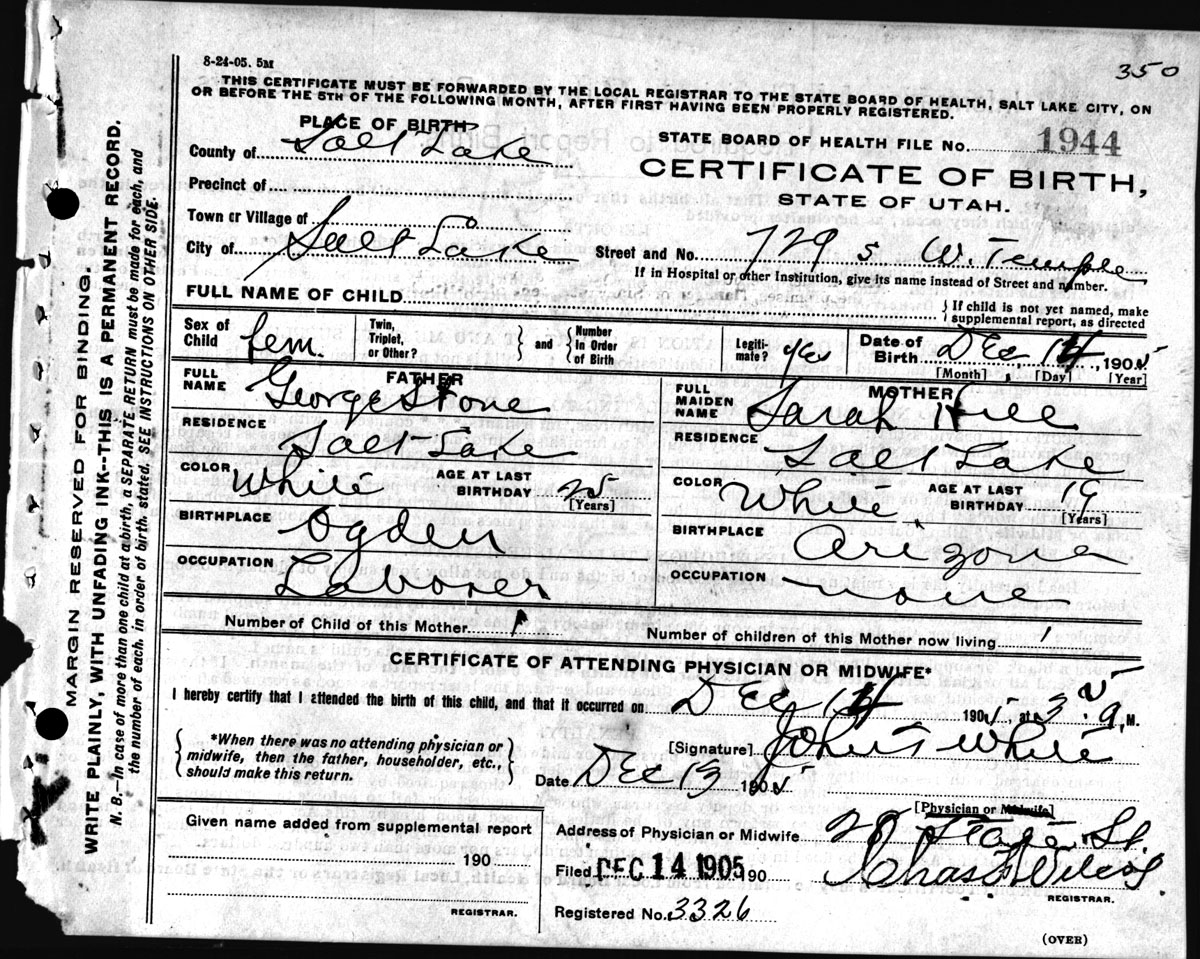 350
8-24-05. 5M
THIS CERTIFICATE MUST BE FORWARDED BY THE LOCAL REGISTRAR TO THE STATE BOARD OF HEALTH, SALT LAKE CITY, ON
OR BEFORE THE 5TH OF THE FOLLOWING MONTH, AFTER FIRST HAVING BEEN PROPERLY REGISTERED.
PLACE OF BIRTH
County of Salt Lake
Precinct of
Town or Village of
City of Salt Lake
STATE BOARD OF HEALTH FILE No. 1944
CERTIFICATE OF BIRTH,
STATE OF UTAH.
Street and No. 729 S W. Temple
If in Hospital or other Institution, give its name instead of Street and number.
FULL NAME OF CHILD
{ If child is not yet named, make
supplemental report, as directed
Sex of Child fem.
Twin, Triplet, or Other?
} and {
Number In Order of Birth
Legiti- mate? yes
Date of Birth Dec 14, 1905
[Month] [Day] [Year]
FATHER
FULL NAME George Stone
RESIDENCE Salt Lake
COLOR White
AGE AT LAST BIRTHDAY 25
[Years]
BIRTHPLACE Ogden
OCCUPATION Laborer
MOTHER
FULL MAIDEN NAME Sarah Hill
RESIDENCE Salt Lake
COLOR White
AGE AT LAST BIRTHDAY 19
[Years]
BIRTHPLACE Arizona
OCCUPATION none
Number of Child of this Mother 1
Number of children of this Mother now living 1
CERTIFICATE OF ATTENDING PHYSICIAN OR MIDWIFE*
I hereby certify that I attended the birth of this child, and that it occurred on Dec 14 1905, at 3 a M.
{ *When there was no attending physician or
midwife, then the father, householder, etc.,
should make this return. }
[Signature] John T White
Date Dec 13 1905
[Physician or Midwife]
Given name added from supplemental report
190
REGISTRAR.
Address of Physician or Midwife State St.
Filed DEC 14 1905 190 Chas Wilcox
REGISTRAR.
Registered No. 3326
(OVER)
MARGIN RESERVED FOR BINDING.
WRITE PLAINLY, WITH UNFADING INK--THIS IS A PERMANENT RECORD.
N. B.—In case of more than one child at a birth, a SEPARATE RETURN must be made for each, and
the number of each, in order of birth, stated. SEE INSTRUCTIONS ON OTHER SIDE.